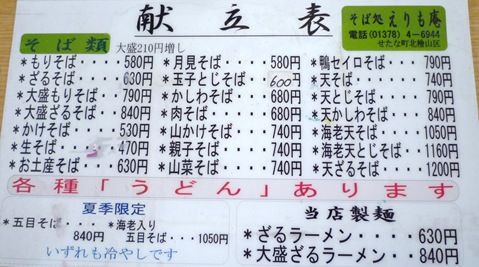 献立表
そば処 えりも庵
電話(01378) 4-6944
せたな町北檜山区
そば類 大盛210円増し
*もりそば・・・・580円
*ざるそば・・・・630円
*大盛もりそば・・790円
*大盛ざるそば・・840円
*かけそば・・・・530円
*生そば・・・・・470円
*お土産そば・・・630円
*月見そば・・・・580円
*玉子とじそば・・600円
*かしわそば・・・680円
*肉そば・・・・・680円
*山かけそば・・・740円
*親子そば・・・・740円
*山菜そば・・・・740円
*鴨セイロそば・・790円
*天そば・・・・・740円
*天とじそば・・・790円
*天かしわそば・・840円
*海老天そば・・・1050円
*海老天とじそば・・1160円
*天ざるそば・・・1200円
各種「うどん」あります
夏季限定
*五目そば・・・・840円
*海老入り五目そば・・・1050円
いずれも冷やしです
当店製麺
*ざるラーメン・・・・630円
*大盛ざるラーメン・・840円